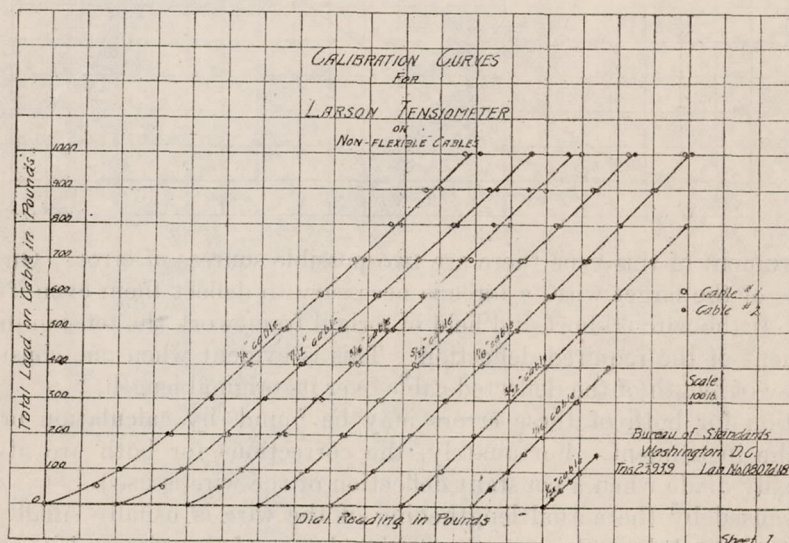 CALIBRATION CURVES
FOR
LARSON TENSIOMETER
ON
NON-FLEXIBLE CABLES
Total Load on Cable in Pounds
1000
900
800
700
600
500
400
300
200
100
0
1/4" cable
7/32" cable
3/16" cable
5/32" cable
1/8" cable
3/32" cable
1/16" cable
1/32" cable
Cable #1
Cable #2
Scale
100 lb.
Bureau of Standards
Washington D.C.
Tns 23939
Dial Reading in Pounds
Sheet 1